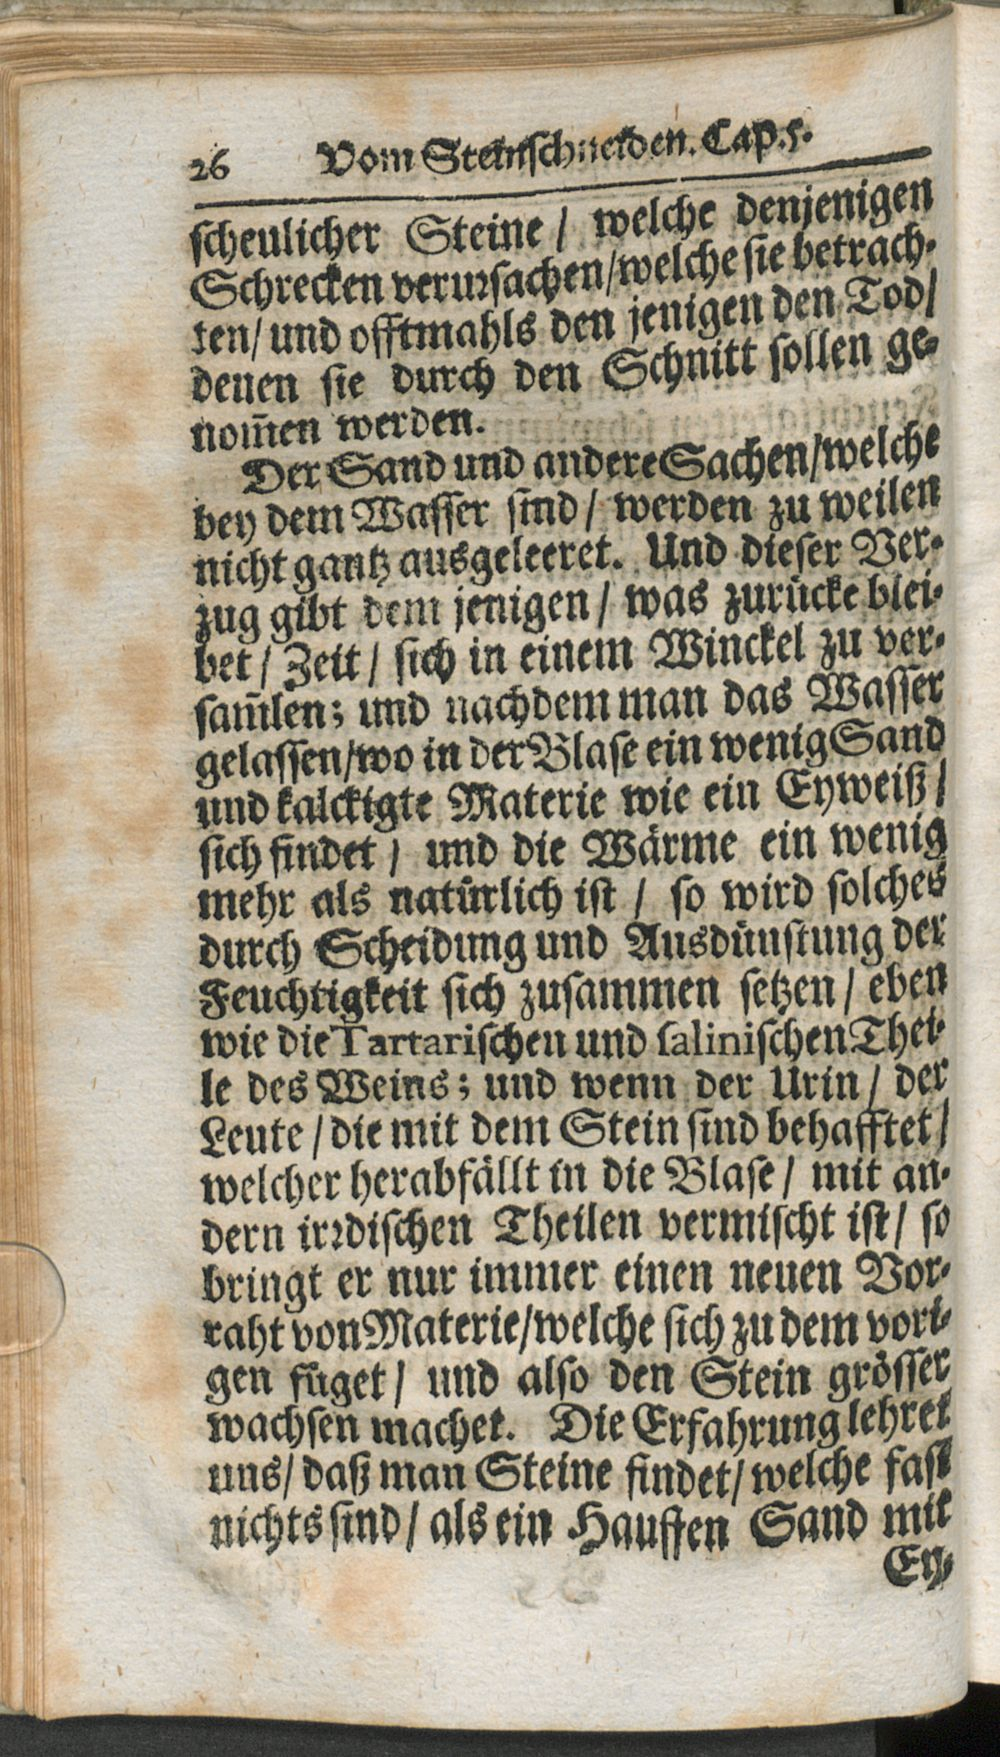 26 Vom Steinschneiden. Cap. 5.
scheulicher Steine / welche denjenigen
Schrecken verursachen / welche sie betrach-
ten / und offtmahls den jenigen den Tod /
denen sie durch den Schnitt sollen ge-
nom̃en werden.
Der Sand und andere Sachen / welche
bey dem Wasser sind / werden zu weilen
nicht gantz ausgeleeret. Und dieser Ver-
zug gibt dem jenigen / was zurücke blei-
bet / Zeit / sich in einem Winckel zu ver-
sam̃len; und nachdem man das Wasser
gelassen / wo in der Blase ein wenig Sand
und kalckigte Materie wie ein Eyweiß /
sich findet / und die Wärme ein wenig
mehr als natürlich ist / so wird solches
durch Scheidung und Ausdünstung der
Feuchtigkeit sich zusammen setzen / eben
wie die Tartarischen und salinischen Thei-
le des Weins; und wenn der Urin / der
Leute / die mit dem Stein sind behafftet /
welcher herabfällt in die Blase / mit an-
dern irrdischen Theilen vermischt ist / so
bringt er nur immer einen neuen Vor-
raht von Materie / welche sich zu dem vori-
gen füget / und also den Stein grösser
wachsen machet. Die Erfahrung lehret
uns / daß man Steine findet / welche fast
nichts sind / als ein Hauffen Sand mit
Ey-